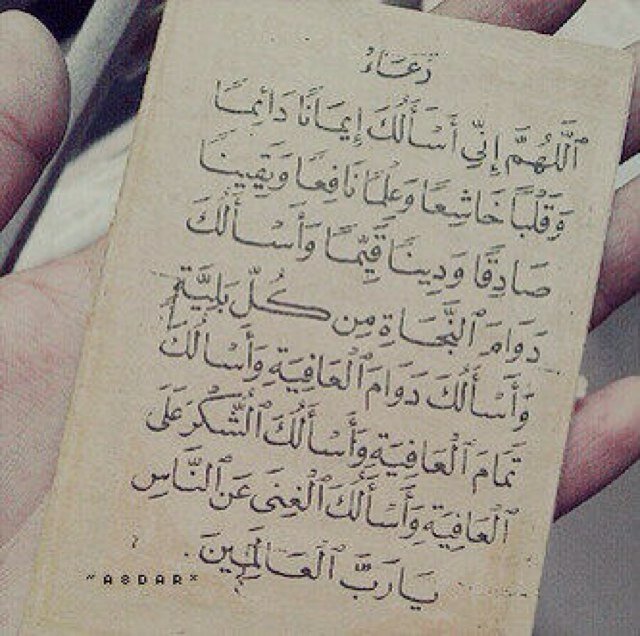 دُعَاءْ
ٱللَّهُمَّ إِنِّي أَسْأَلُكَ إِيمَانًا دَائِمًا
وَقَلْبًا خَاشِعًا وَعِلْمًا نَافِعًا وَيَقِينًا
صَادِقًا وَدِينًا قَيِّمًا وَأَسْأَلُكَ
دَوَامَ ٱلنَّجَاةِ مِن كُلِّ بَلِيَّةٍ
وَأَسْأَلُكَ دَوَامَ ٱلْعَافِيَةِ وَأَسْأَلُكَ
تَمَامَ ٱلْعَافِيَةِ وَأَسْأَلُكَ ٱلشُّكْرَ عَلَى
ٱلْعَافِيَةِ وَأَسْأَلُكَ ٱلْغِنَى عَنِ ٱلنَّاسِ
يَارَبَّ ٱلْعَالَمِينَ .
"A8DAR"